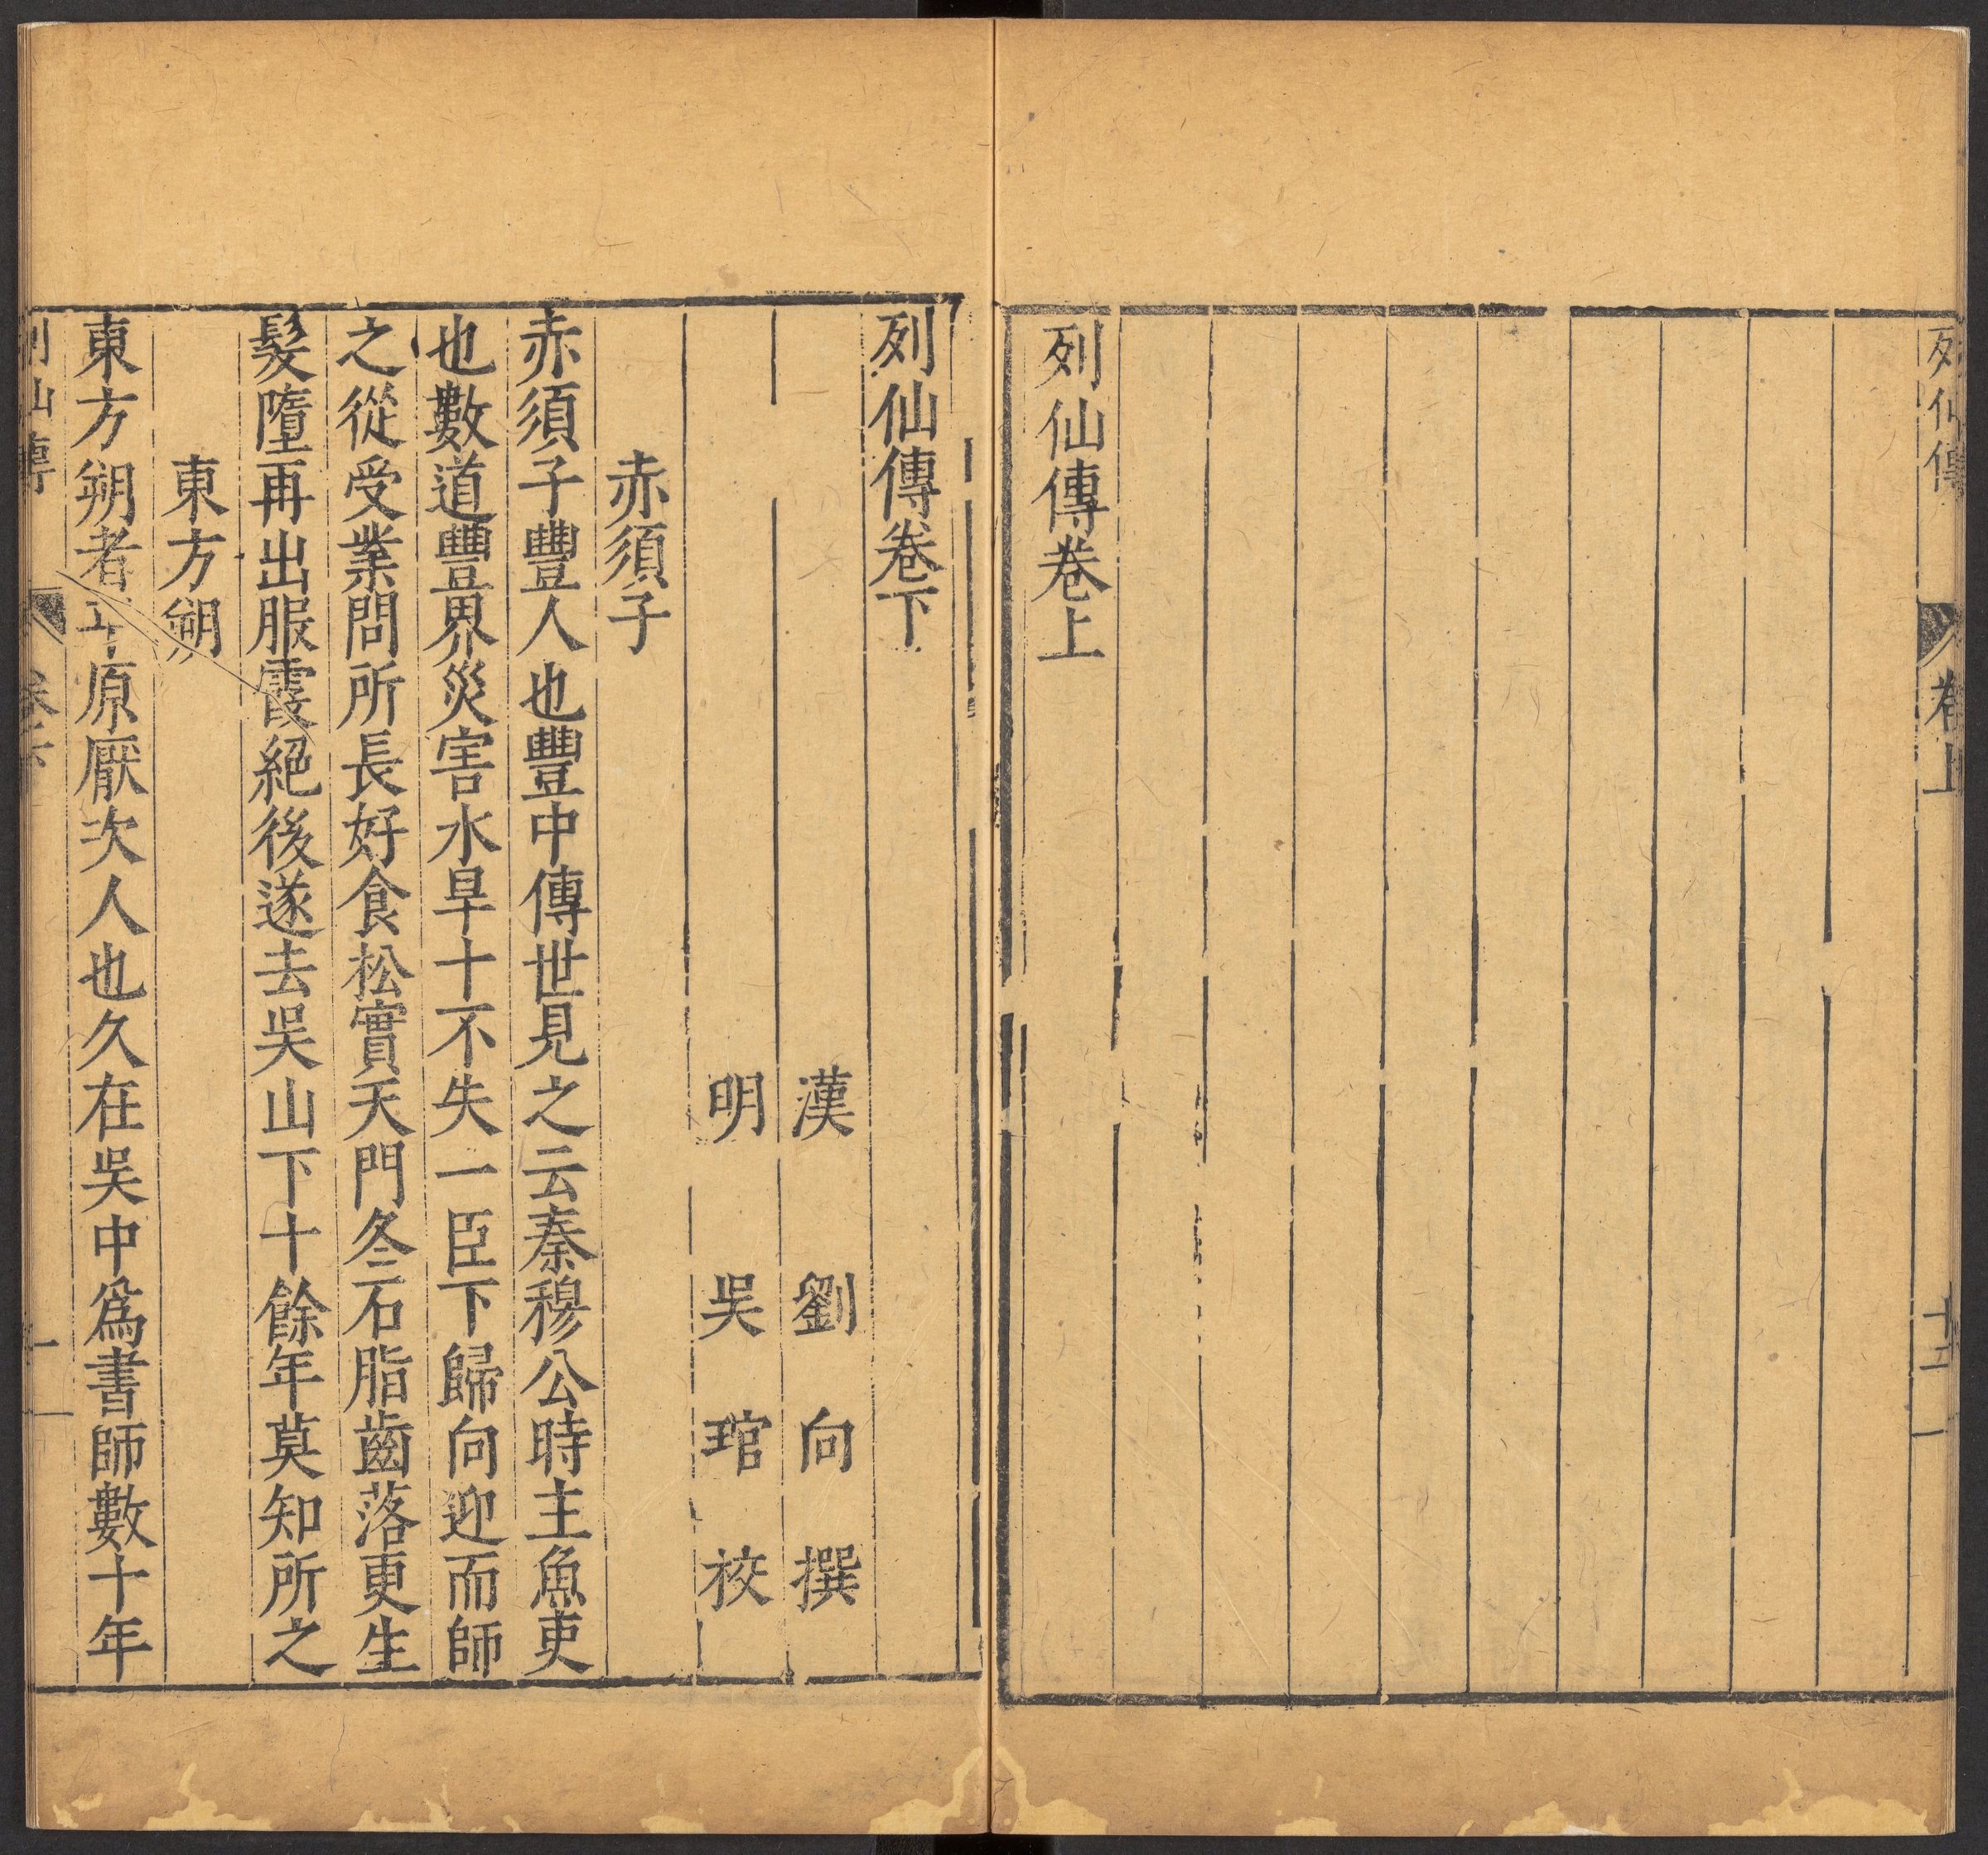 列仙傳
卷上
十二
列仙傳卷上
列仙傳卷下
漢 劉向撰
明 吳琯校
赤須子
赤須子豐人也豐中傳世見之云秦穆公時主魚吏
也數道豐界災害水旱十不失一臣下歸向迎而師
之從受業問所長好食松實天門冬石脂齒落更生
髮墮再出服霞絕後遂去吳山下十餘年莫知所之
東方朔
東方朔者平原厭次人也久在吳中爲書師數十年
列仙傳
一